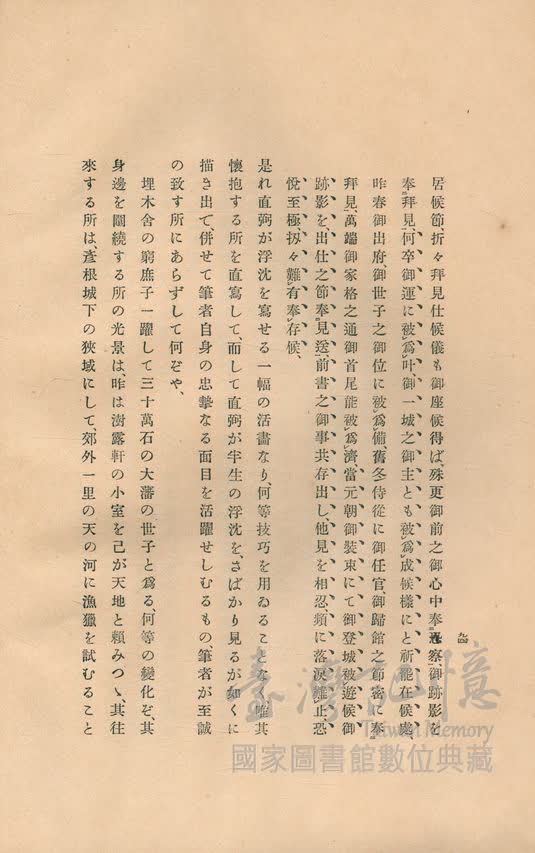 居候節、折々拜見仕候儀も御座候得ば、殊更御前之御心中奉恐察、御跡影を
奉拜見、何卒御運に被爲叶、御一城之御主とも被爲成候樣にと祈罷在候處、
昨春御出府、御世子之御位に被爲備、舊冬侍從に御任官、御歸館之節密に奉
拜見、萬端御家格之通御首尾能被爲濟、當元朝御裝束にて御登城被遊候御
跡影を、出仕之節奉見送、前書之御事共存出し、他見を相忍、頻に落淚難止、恐
悅至極扨々難有奉存候、
是れ直弼が浮沈を寫せる一幅の活畫なり、何等技巧を用ゐることなく、唯其
懷抱する所を直寫して、而して直弼が半生の浮沈を、さばかり見るが如くに
描き出て、併せて筆者自身の忠摯なる面目を活躍せしむるもの、筆者が至誠
の致す所にあらずして何ぞや、
埋木舍の窮庶子一躍して三十萬石の大藩の世子と爲る、何等の變化ぞ、其
身邊を圍繞する所の光景は、昨は澍露軒の小室を己が天地と賴みつゝ、其往
來する所は、彥根城下の狹域にして、郊外一里の天の河に漁獵を試むること
九四
臺灣記憶
Taiwan Memory
國家圖書館數位典藏